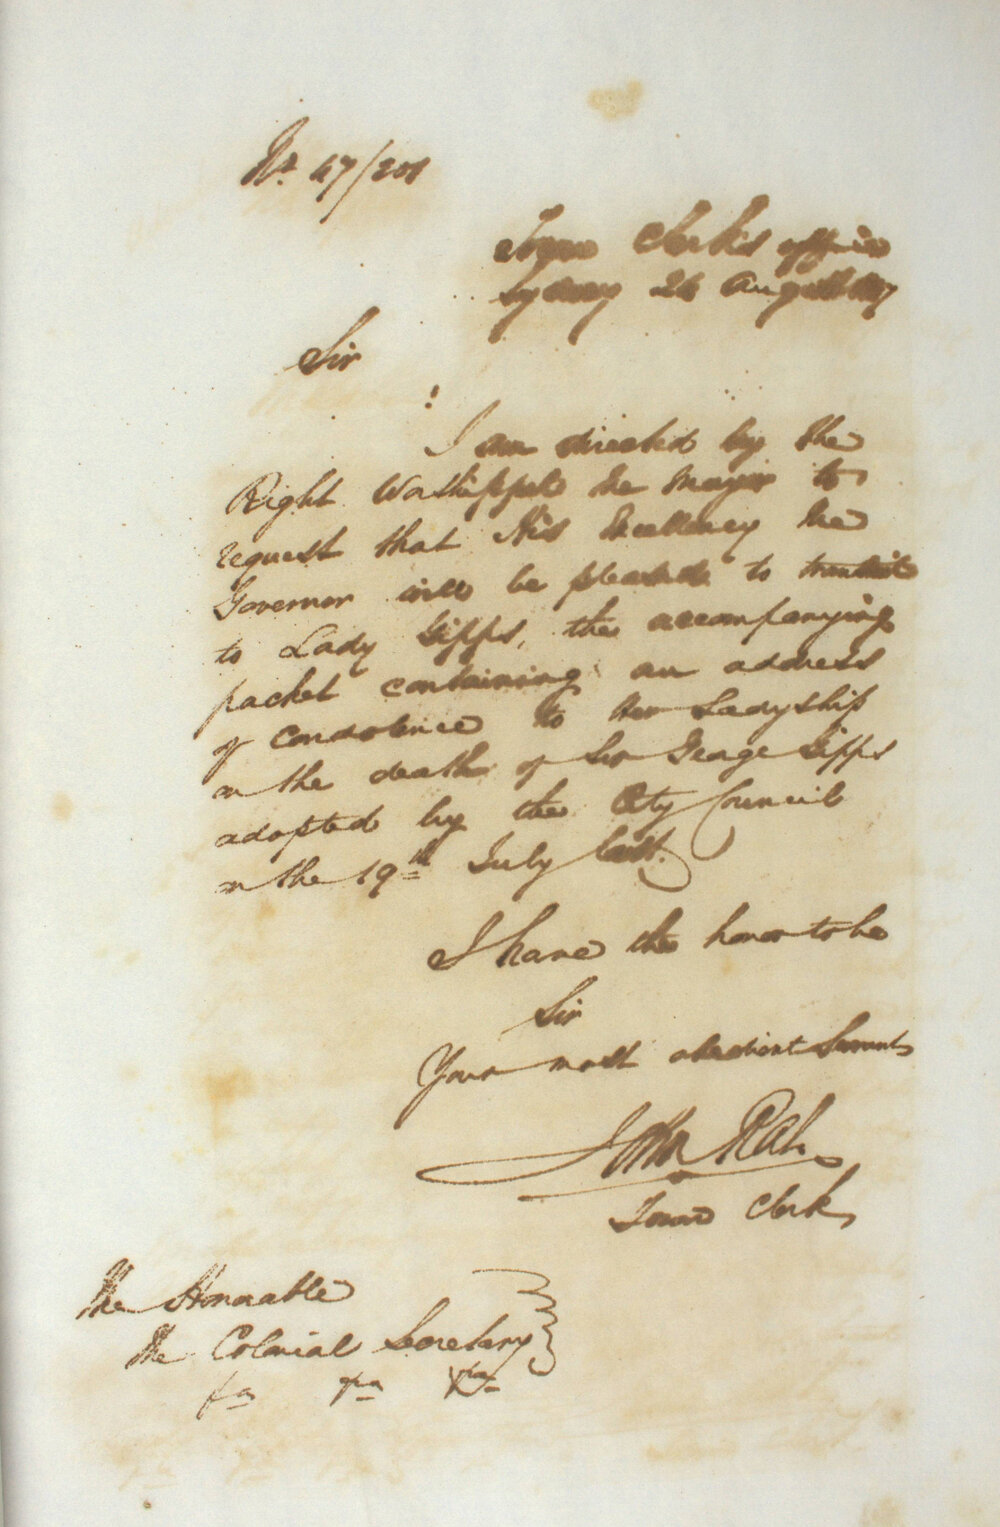 No. 47/201
Town Clerk's office
Sydney 26 August 1847
Sir
I am directed by the
Right Worshipful the Mayor to
request that His Excellency the
Governor will be pleased to transmit
to Lady Gipps, the accompanying
packet containing an address
of condolence to Her Ladyship
on the death of Sir George Gipps
adopted by the City Council
on the 19th July last.
I have the honor to be
Sir
Your most obedient Servant
John Rae
Town Clerk
The Honorable
The Colonial Secretary